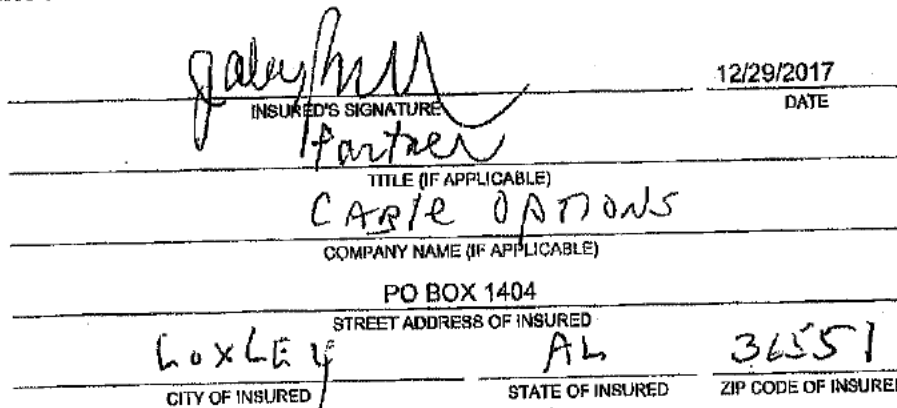 12/29/2017
INSURED'S SIGNATURE DATE
Partner
TITLE (IF APPLICABLE)
CABle OPTIONS
COMPANY NAME (IF APPLICABLE)
PO BOX 1404
STREET ADDRESS OF INSURED
LOXLEy AL 36551
CITY OF INSURED STATE OF INSURED ZIP CODE OF INSURED